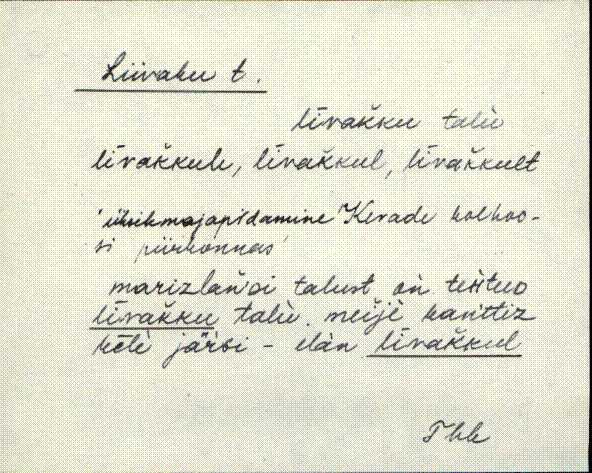 Liivaku t.
līvakku talu
līvakkule, līvakkul, līvakkult
'üksikmajapidamine Kevade kolhoo-
si piirkonnas'
talust on tehtuo
līvakku talu. meije kanttiz
järbi - elan līvakkul